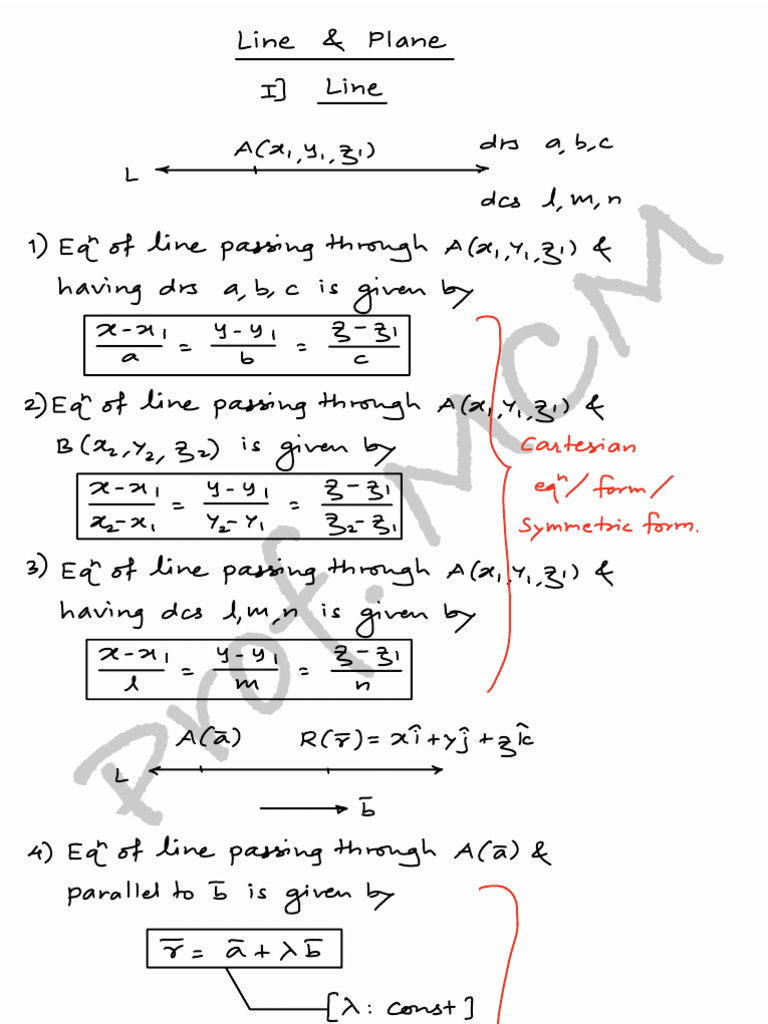 Line & Plane
I] Line
A(x₁, y₁, z₁)
drs a, b, c
L
dcs l, m, n
1) Eqⁿ of line passing through A(x₁, y₁, z₁) &
having drs a, b, c is given by
(x-x₁)/a = (y-y₁)/b = (z-z₁)/c
2) Eqⁿ of line passing through A(x₁, y₁, z₁) &
B(x₂, y₂, z₂) is given by
(x-x₁)/(x₂-x₁) = (y-y₁)/(y₂-y₁) = (z-z₁)/(z₂-z₁)
Cartesian
eqⁿ/ form/
Symmetric form.
3) Eqⁿ of line passing through A(x₁, y₁, z₁) &
having dcs l, m, n is given by
(x-x₁)/l = (y-y₁)/m = (z-z₁)/n
A(a̅) R(r̅) = xî + yĵ + zk̂
L
b̅
4) Eqⁿ of line passing through A(a̅) &
parallel to b̅ is given by
r̅ = a̅ + λb̅
[λ: const]
Prof. MCM